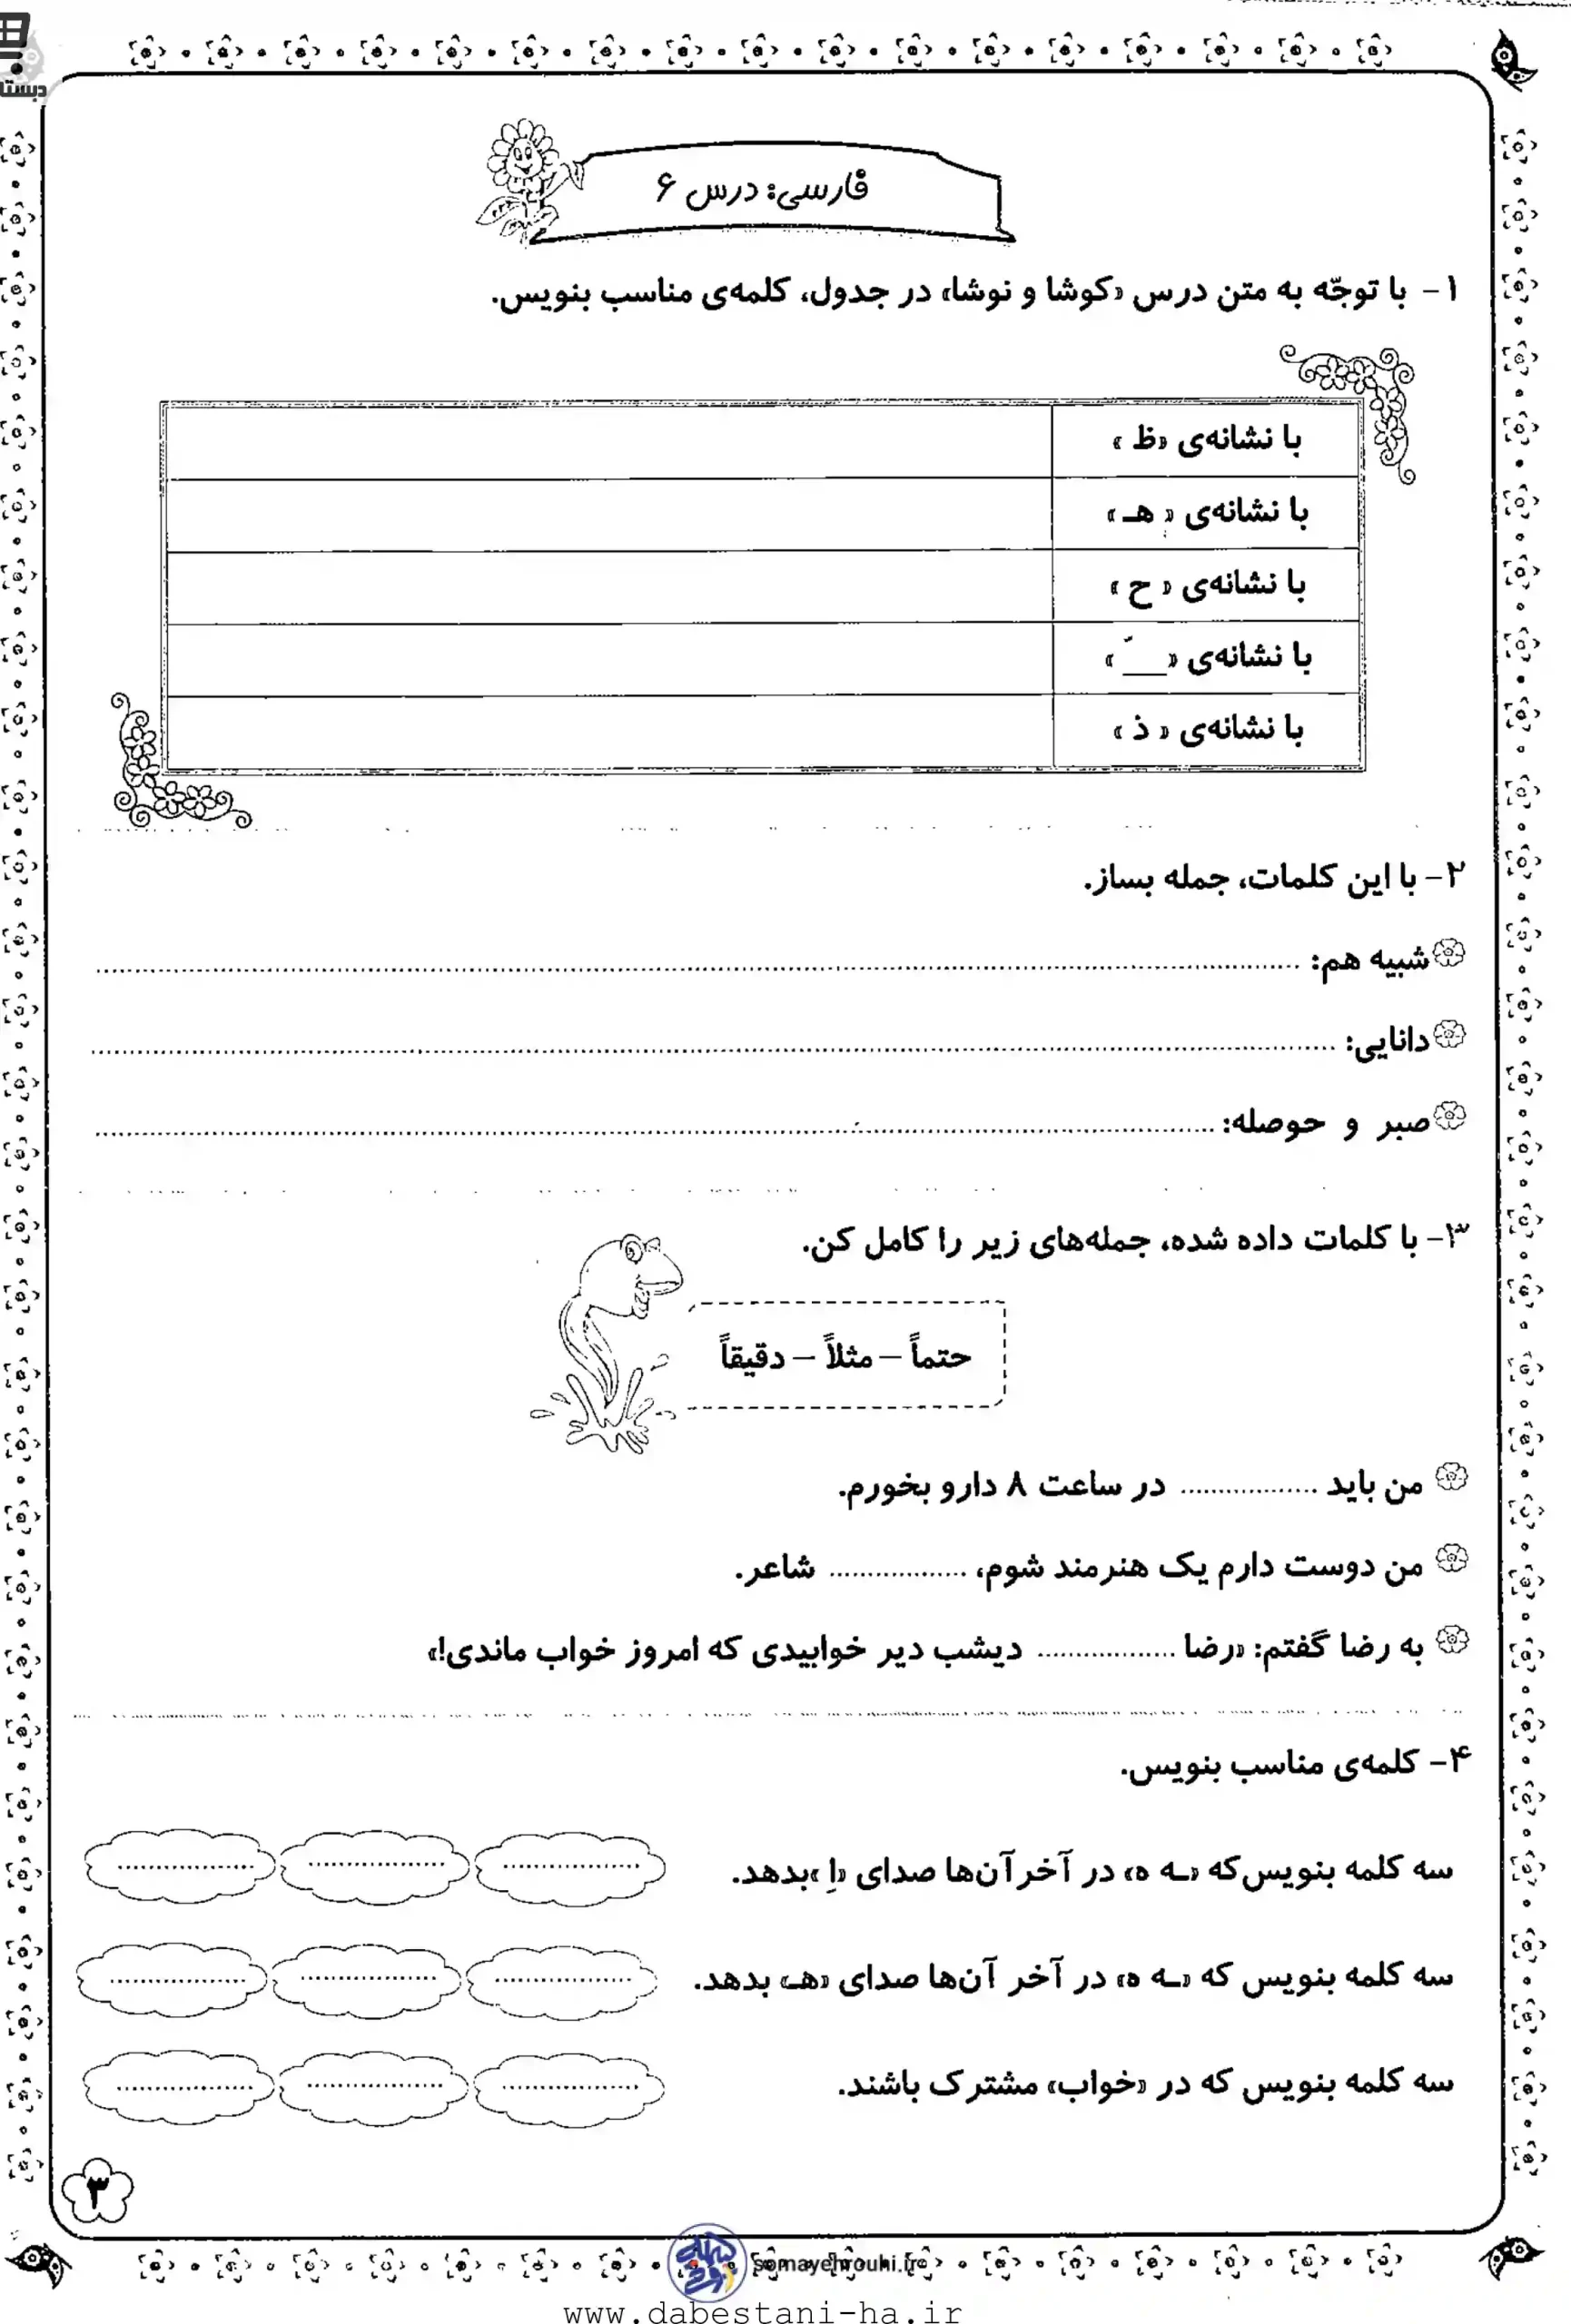 دبستا
فارسی: درس ۶
۱- با توجّه به متن درس «کوشا و نوشا» در جدول، کلمه‌ی مناسب بنویس.
با نشانه‌ی «ظ»
با نشانه‌ی «هـ»
با نشانه‌ی «ح»
با نشانه‌ی «ــّ»
با نشانه‌ی «ذ»
۲- با این کلمات، جمله بساز.
شبیه هم: ..........
دانایی: ..........
صبر و حوصله: ..........
۳- با کلمات داده شده، جمله‌های زیر را کامل کن.
حتماً – مثلاً – دقیقاً
من باید .................. در ساعت ۸ دارو بخورم.
من دوست دارم یک هنرمند شوم، .................. شاعر.
به رضا گفتم: «رضا .................. دیشب دیر خوابیدی که امروز خواب ماندی!»
۴- کلمه‌ی مناسب بنویس.
سه کلمه بنویس که «ـه ه» در آخر آن‌ها صدای «اِ» بدهد. .................. .................. ..................
سه کلمه بنویس که «ـه ه» در آخر آن‌ها صدای «هـ» بدهد. .................. .................. ..................
سه کلمه بنویس که در «خواب» مشترک باشند. .................. .................. ..................
۳
somayehrouhi.ir
www.dabestani-ha.ir